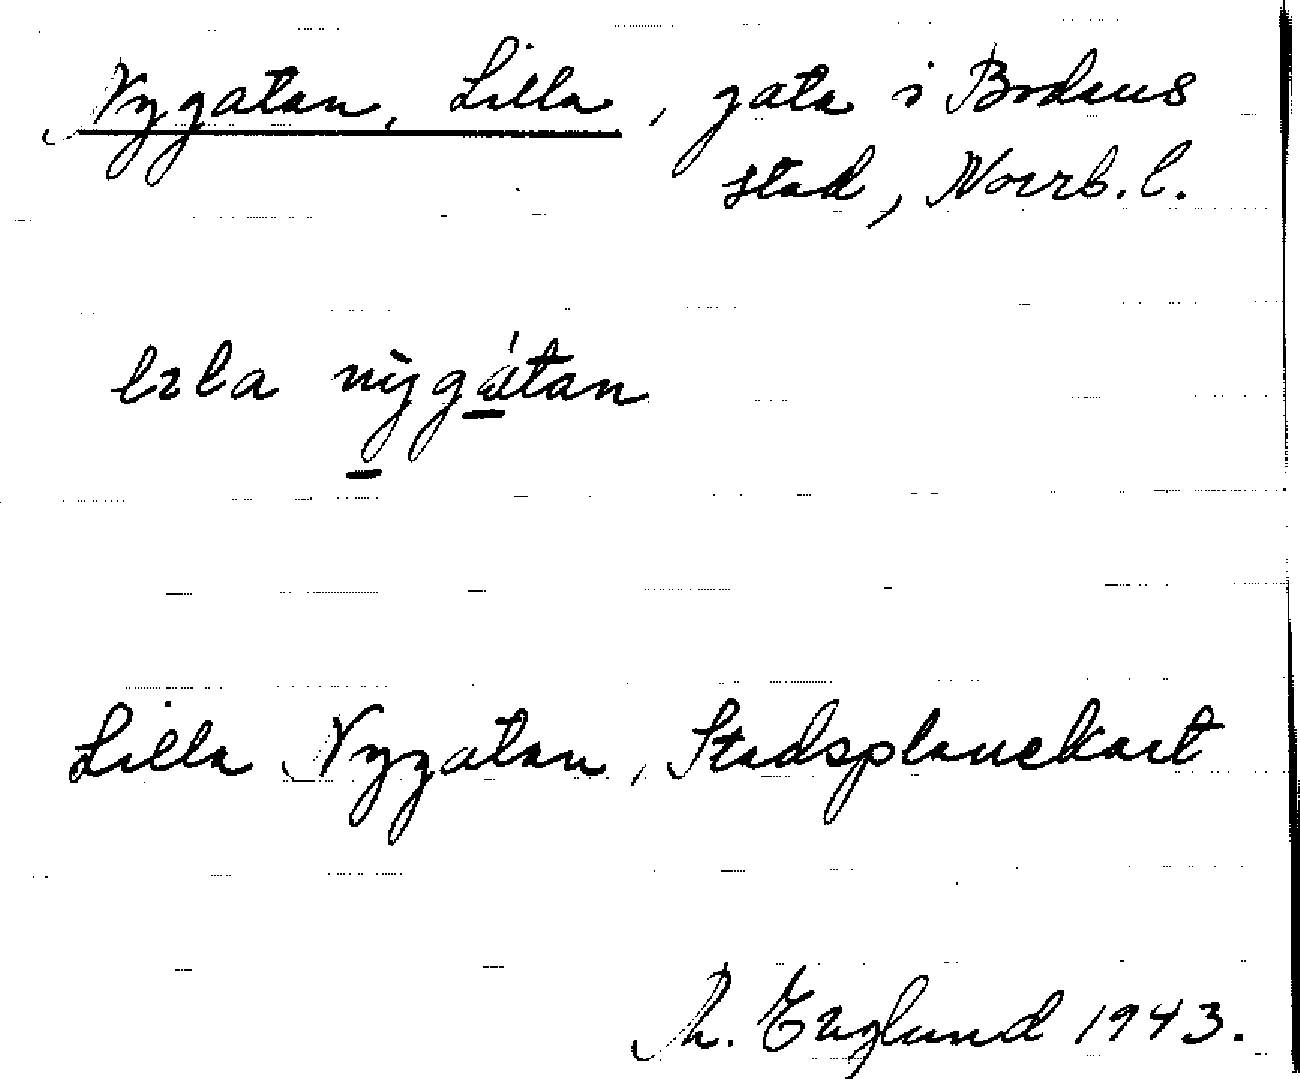 Nygatan, Lilla, gata i Bodens
stad, Norrb. l.
lɩla nỳ̠gá̠tan
Lilla Nygatan, Stadsplanekart
R. Englund 1943.